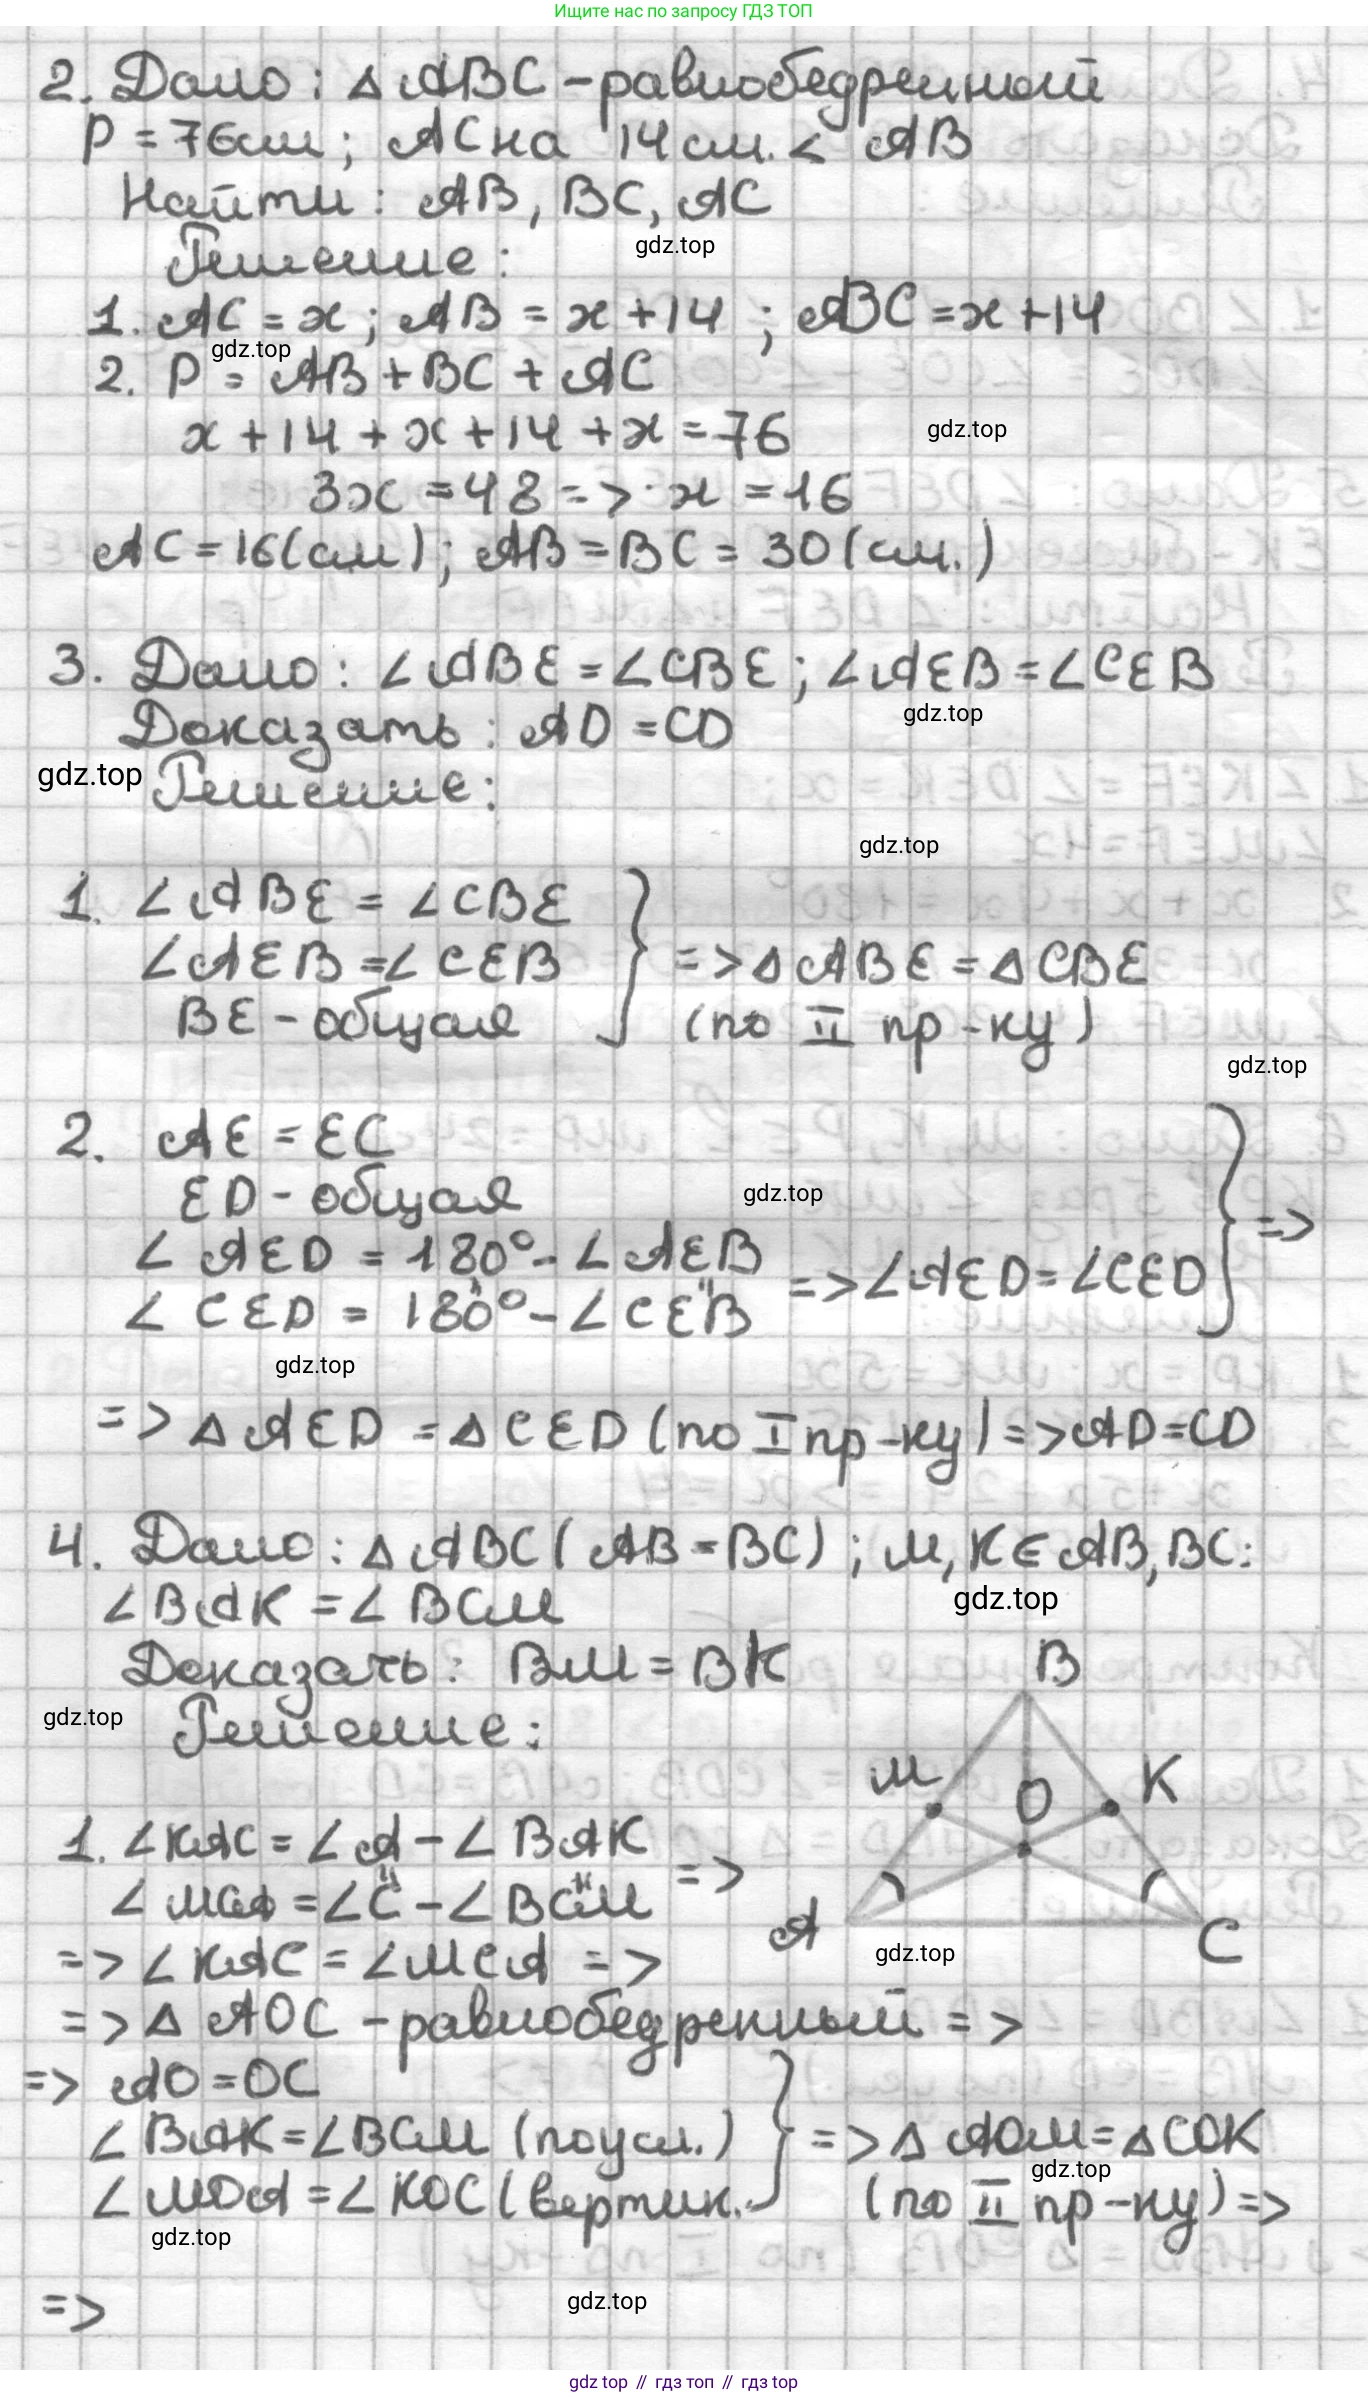 Ищите нас по запросу ГДЗ ТОП
2. Дано: △ ABC - равнобедренный
P = 76см; AC на 14 см. < AB
Найти: AB, BC, AC
gdz.top
Решение:
1. AC = x; AB = x + 14 ; BC = x + 14
gdz.top
2. P = AB + BC + AC
x + 14 + x + 14 + x = 76
gdz.top
3x = 48 => x = 16
AC = 16(см); AB = BC = 30(см.)
3. Дано: ∠ABE = ∠CBE; ∠AEB = ∠CEB
gdz.top
Доказать: AD = CD
gdz.top
Решение:
gdz.top
1. ∠ABE = ∠CBE
∠AEB = ∠CEB } => △ABE = △CBE
BE - общая (по II пр-ку)
gdz.top
2. AE = EC
ED - общая
gdz.top
∠AED = 180° - ∠AEB
=> ∠AED = ∠CED } =>
∠CED = 180° - ∠CEB
gdz.top
=> △AED = △CED (по I пр-ку) => AD = CD
4. Дано: △ABC (AB = BC); M, K ∈ AB, BC:
gdz.top
∠BAK = ∠BCM
Доказать: BM = BK
B
gdz.top
Решение:
M O K
1. ∠KAC = ∠A - ∠BAK
=>
∠MCA = ∠C - ∠BCM
A C
gdz.top
=> ∠KAC = ∠MCA =>
=> △ AOC - равнобедренный =>
=> AO = OC
∠BAK = ∠BCM (по усл.) } => △AOM = △COK
gdz.top
∠MOA = ∠KOC (вертик. (по II пр-ку) =>
gdz.top
gdz.top
=>
gdz top // гдз топ // гдз top